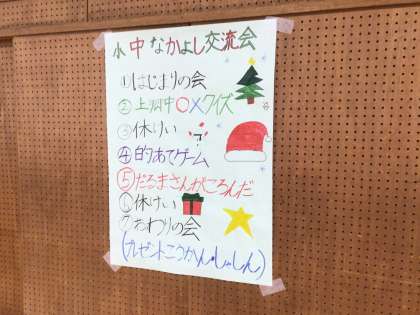 小中なかよし交流会
①はじまりの会
②上中〇×クイズ
③休けい
④的あてゲーム
⑤だるまさんがころんだ
⑥休けい
⑦おわりの会
(プレゼントこうかん・しゃしん)